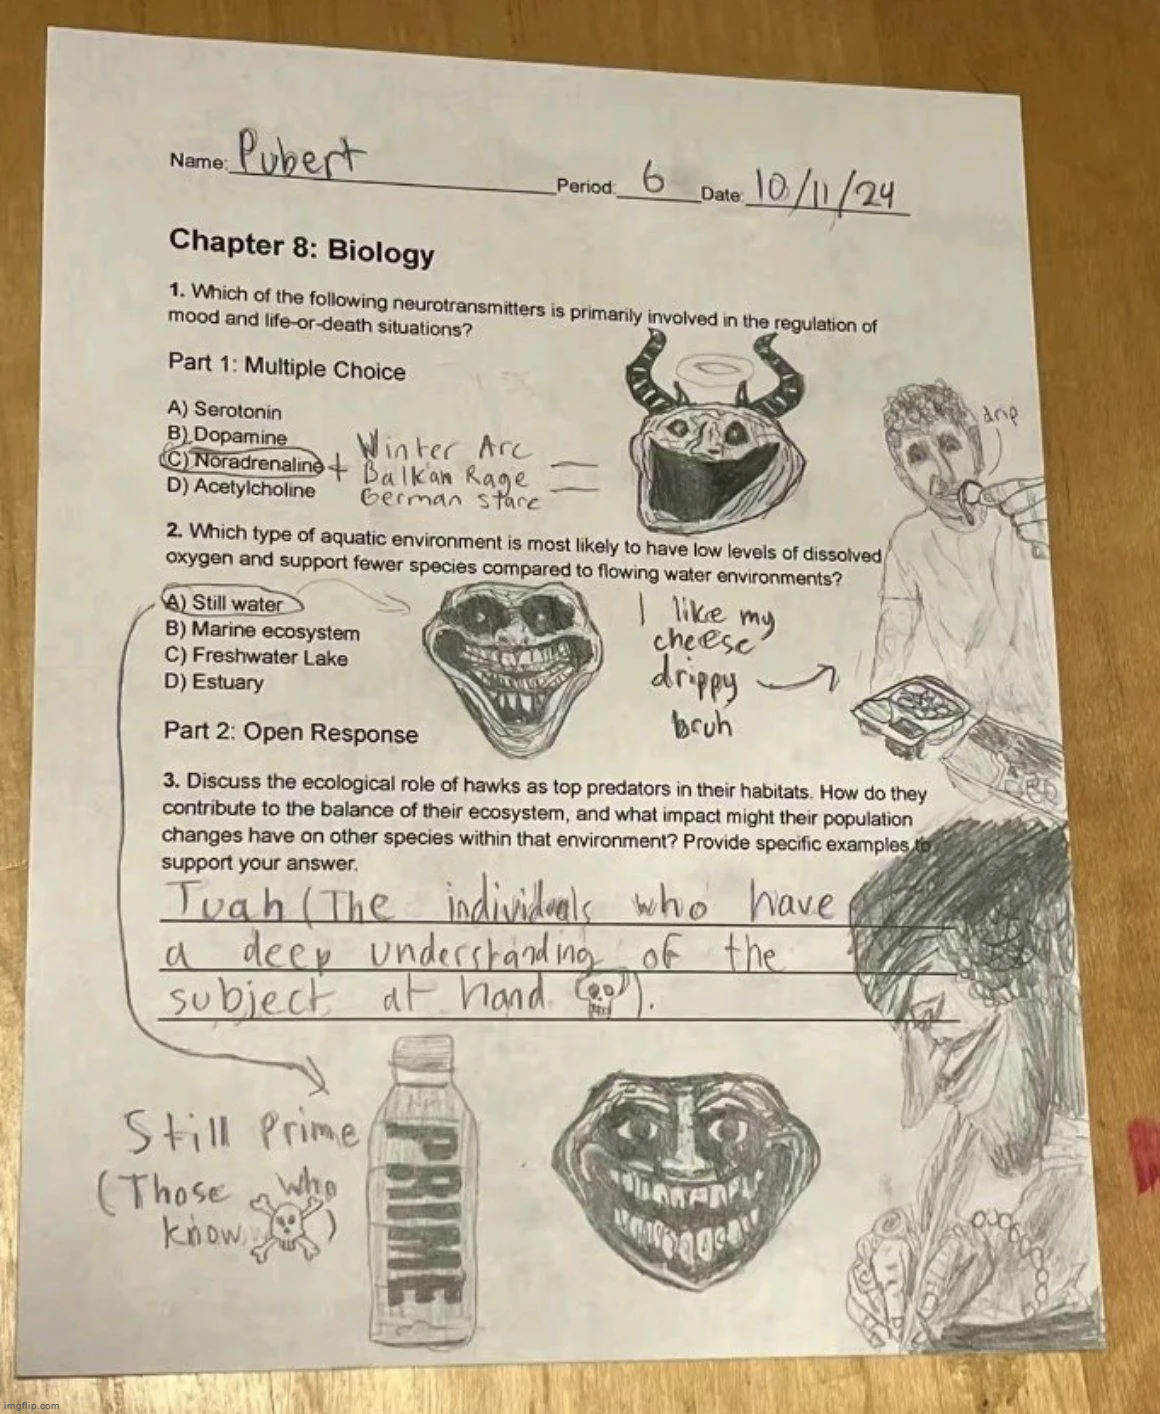 Name: Pubert Period: 6 Date: 10/11/24
Chapter 8: Biology
1. Which of the following neurotransmitters is primarily involved in the regulation of
mood and life-or-death situations?
Part 1: Multiple Choice
A) Serotonin
B) Dopamine
C) Noradrenaline +
D) Acetylcholine
Winter Arc
Balkan Rage =
German stare
drip
2. Which type of aquatic environment is most likely to have low levels of dissolved
oxygen and support fewer species compared to flowing water environments?
A) Still water
B) Marine ecosystem
C) Freshwater Lake
D) Estuary
I like my
cheese
drippy
bruh
Part 2: Open Response
3. Discuss the ecological role of hawks as top predators in their habitats. How do they
contribute to the balance of their ecosystem, and what impact might their population
changes have on other species within that environment? Provide specific examples to
support your answer.
Tuah (The individuals who have
a deep understanding of the
subject at hand 💀).
Still Prime
(Those who
know ☠)
PRIME
imgflip.com